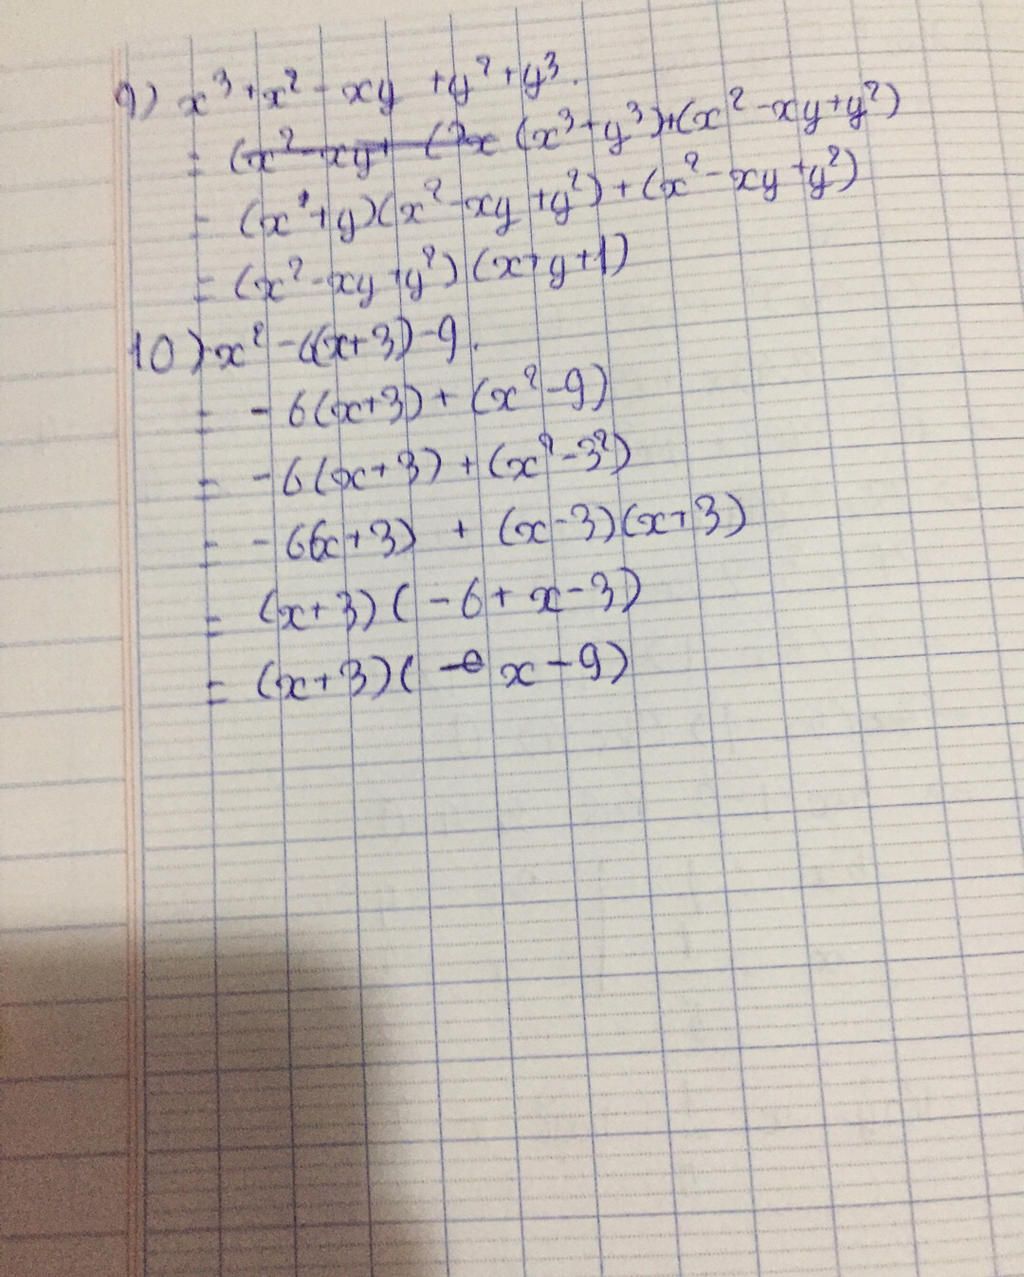 9) x³ + x² - xy + y² + y³.
= (x² - xy + (x (x³ + y³) + (x² - xy + y²)
= (x + y)(x² - xy + y²) + (x² - xy + y²)
= (x² - xy + y²)(x + y + 1)
10) x² - 6(x + 3) - 9.
= - 6(x + 3) + (x² - 9)
= - 6(x + 3) + (x² - 3²)
= - 6(x + 3) + (x - 3)(x + 3)
= (x + 3)( - 6 + x - 3)
= (x + 3)( x - 9)